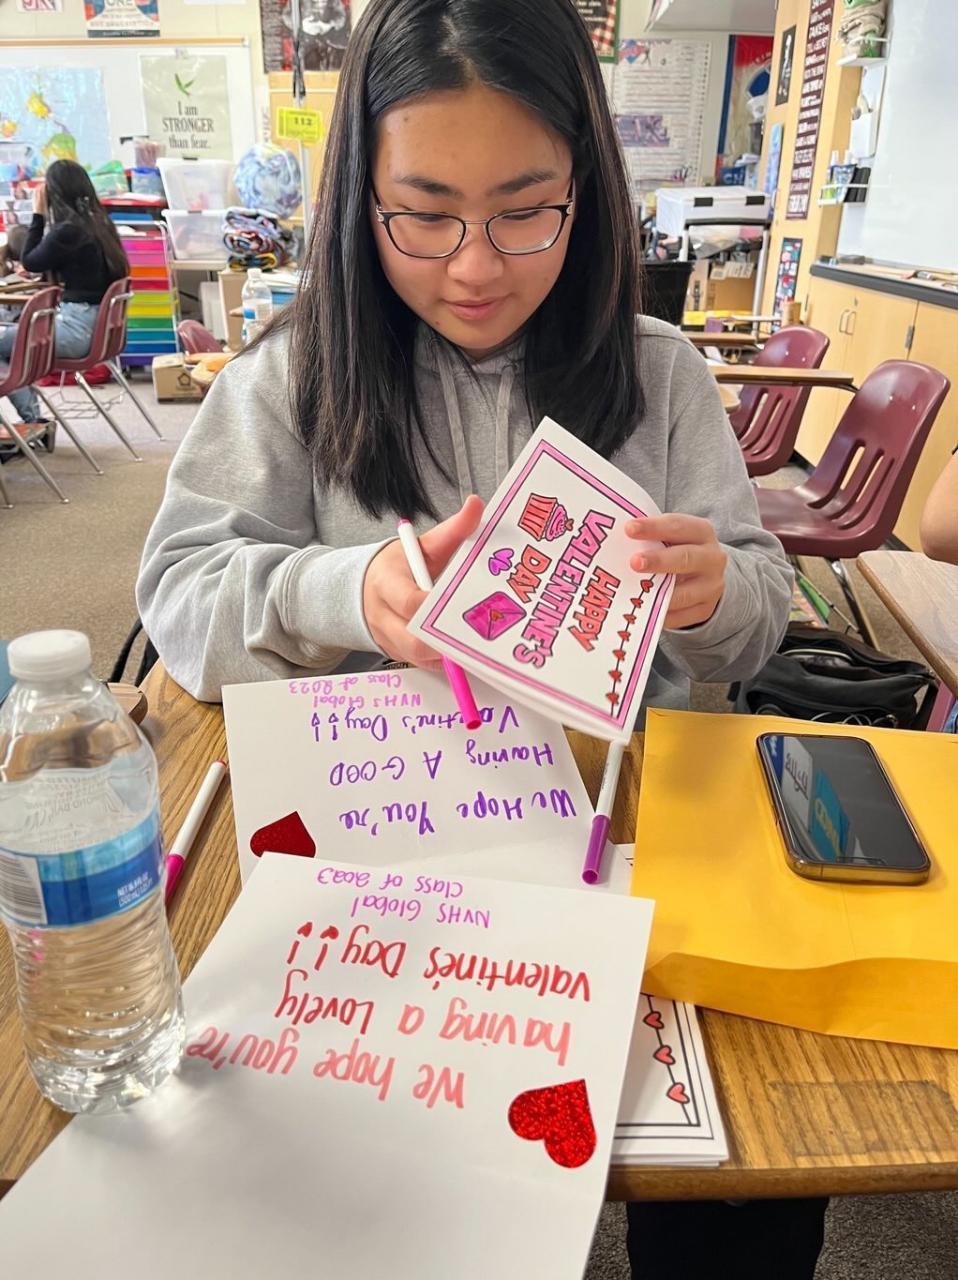 I am
STRONGER
than fear.
112
HAPPY
VALENTINE'S
DAY
We Hope You're
Having A GOOD
Valentine's Day!!
NVHS Global
Class of 2023
We hope you're
having a Lovely
valentine's Day!!
NVHS Global
Class of 2023